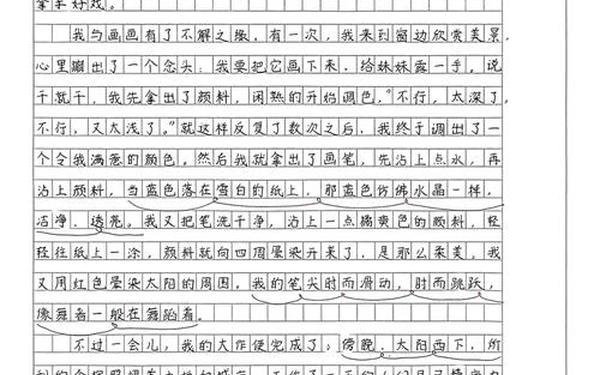 拿手好戏。
我与画画有了不解之缘。有一次，我来到窗边欣赏美景，
心里蹦出了一个念头：我要把它画下来，给妹妹露一手，说
干就干，我先拿出了颜料，闲熟的开始调色，“不行，太深了，
不行，又太浅了。”就这样反复了数次之后，我终于调出了一
个令我满意的颜色。然后我就拿出了画笔，先沾上点水，再
沾上颜料，当蓝色落在雪白的纸上，那蓝色仿佛水晶一样，
洁净、透亮。我又把笔洗干净，沾上一点橘黄色的颜料，轻
轻往纸上一涂，颜料就向四周晕染开来了，是那么柔美。我
又用红色晕染太阳的周围，我的笔尖时而滑动，时而跳跃，
像舞者一般在舞蹈着。
不过一会儿，我的大作便完成了；傍晚，太阳西下，所